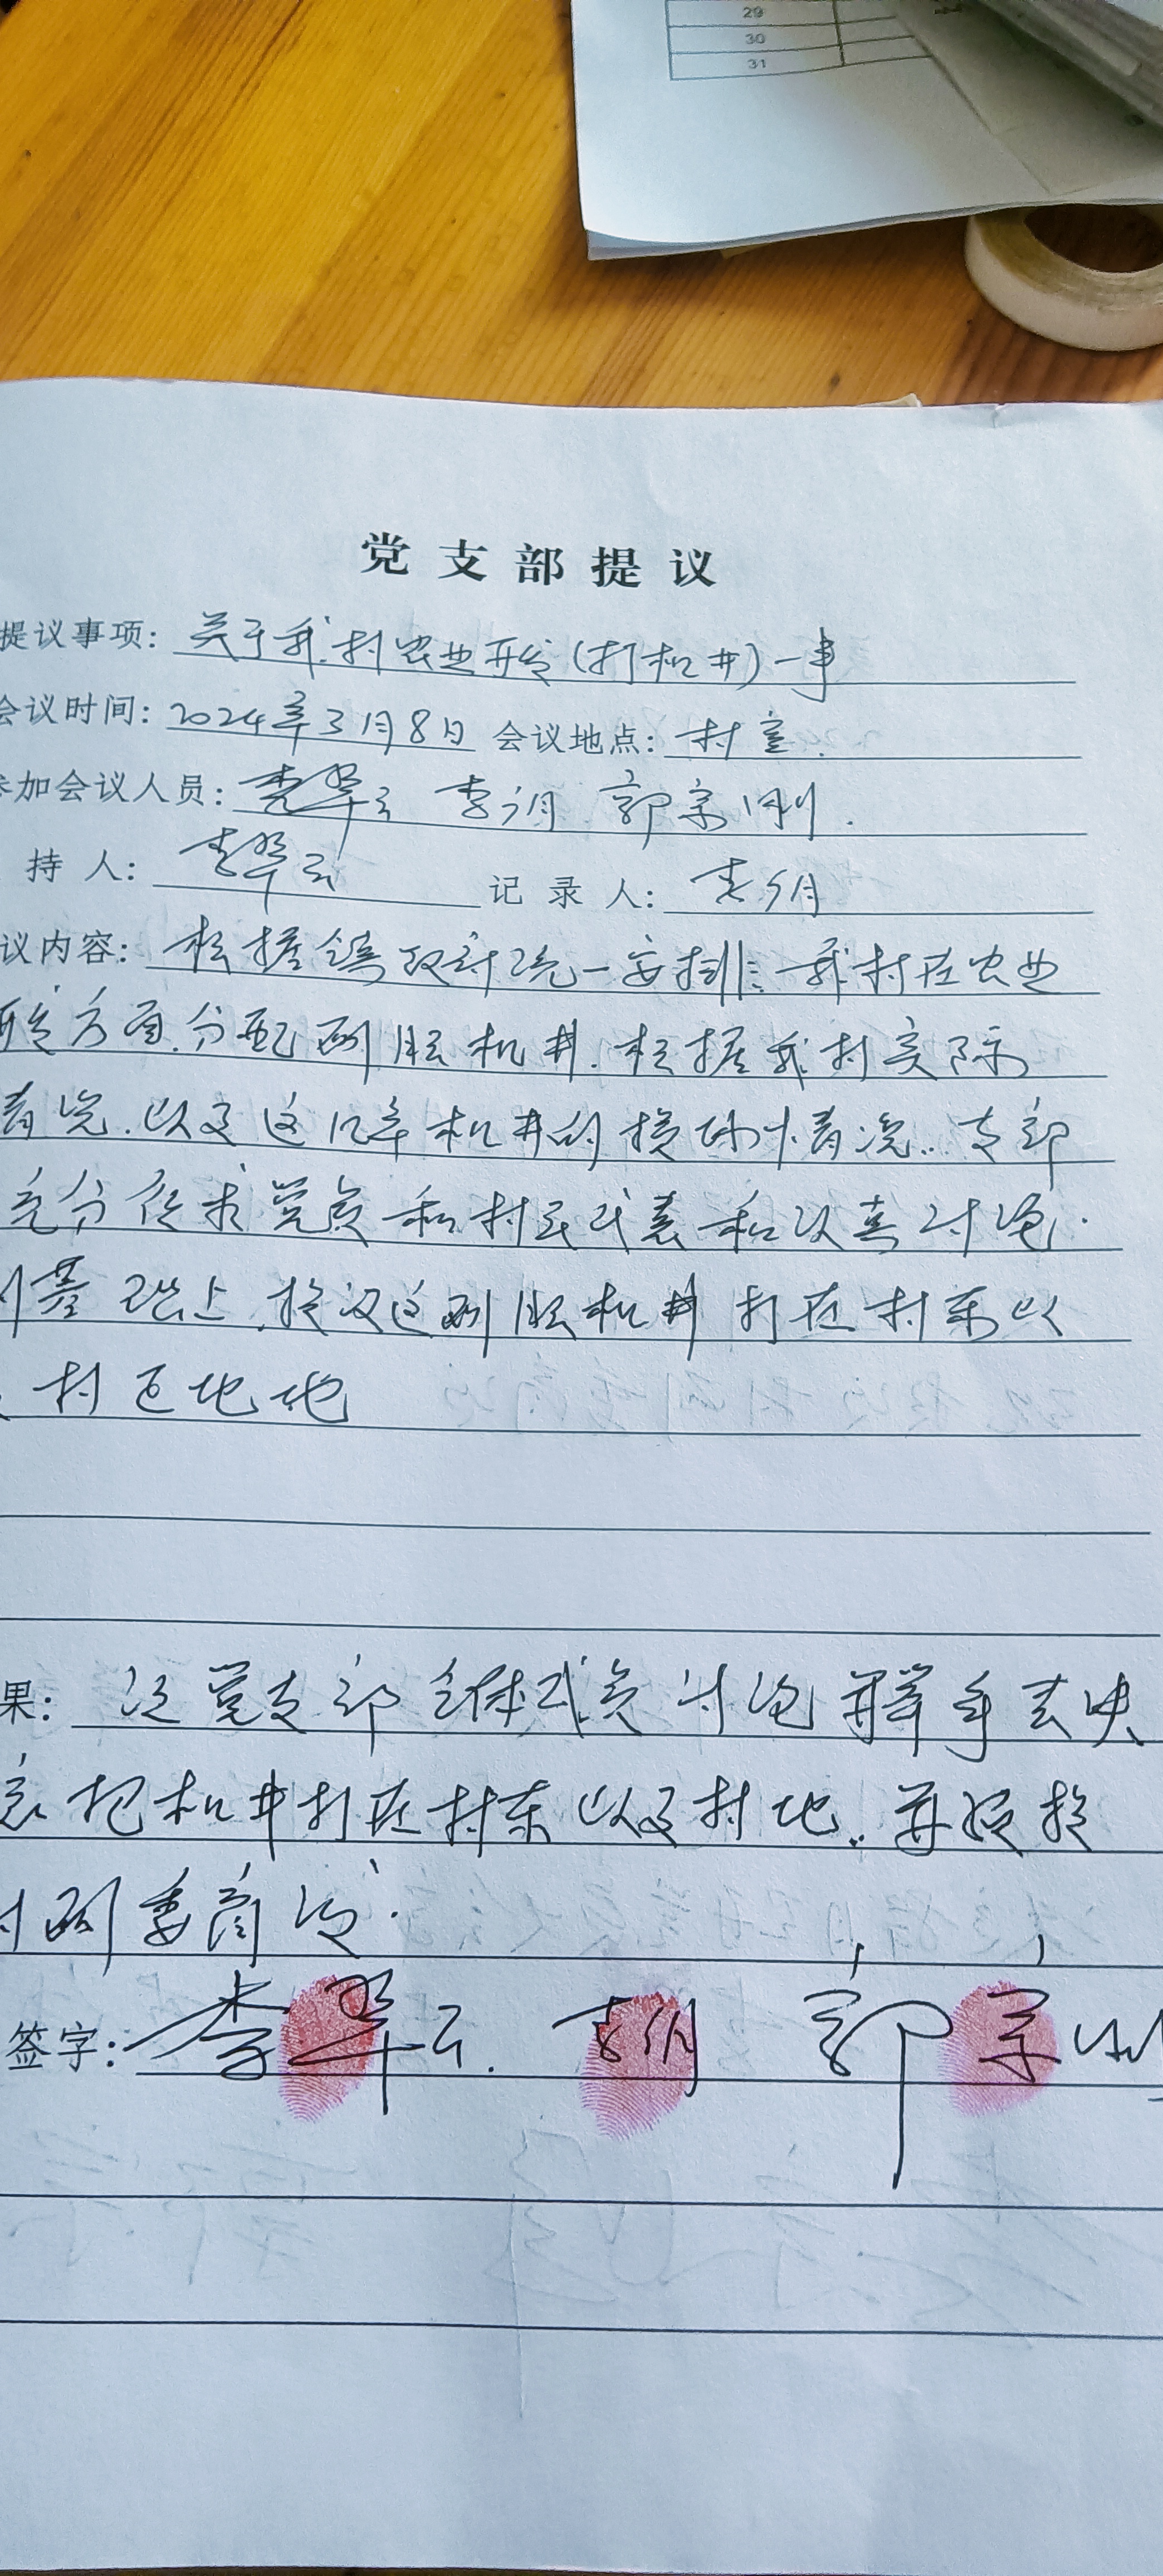 29
30
31
党支部提议
提议事项: 关于我村农业开发(打机井)一事
会议时间: 2024年3月8日 会议地点: 村室.
参加会议人员: 李翠云 李月 郭宗刚.
持人: 李翠云 记录人: 李月
议内容: 根据镇政府统一安排: 我村在农业
开发方面.分配两眼机井.根据我村实际
情况.以及这几年机井的损坏情况..支部
充分征求党员和村民代表和认真讨论.
基础上.提议这两眼机井打在村东以
村地
果: 经党支部全体成员讨论并举手表决
意把机井打在村东以及村地..并将提
村两委商议.
签字: 李翠云. 李月 郭宗刚